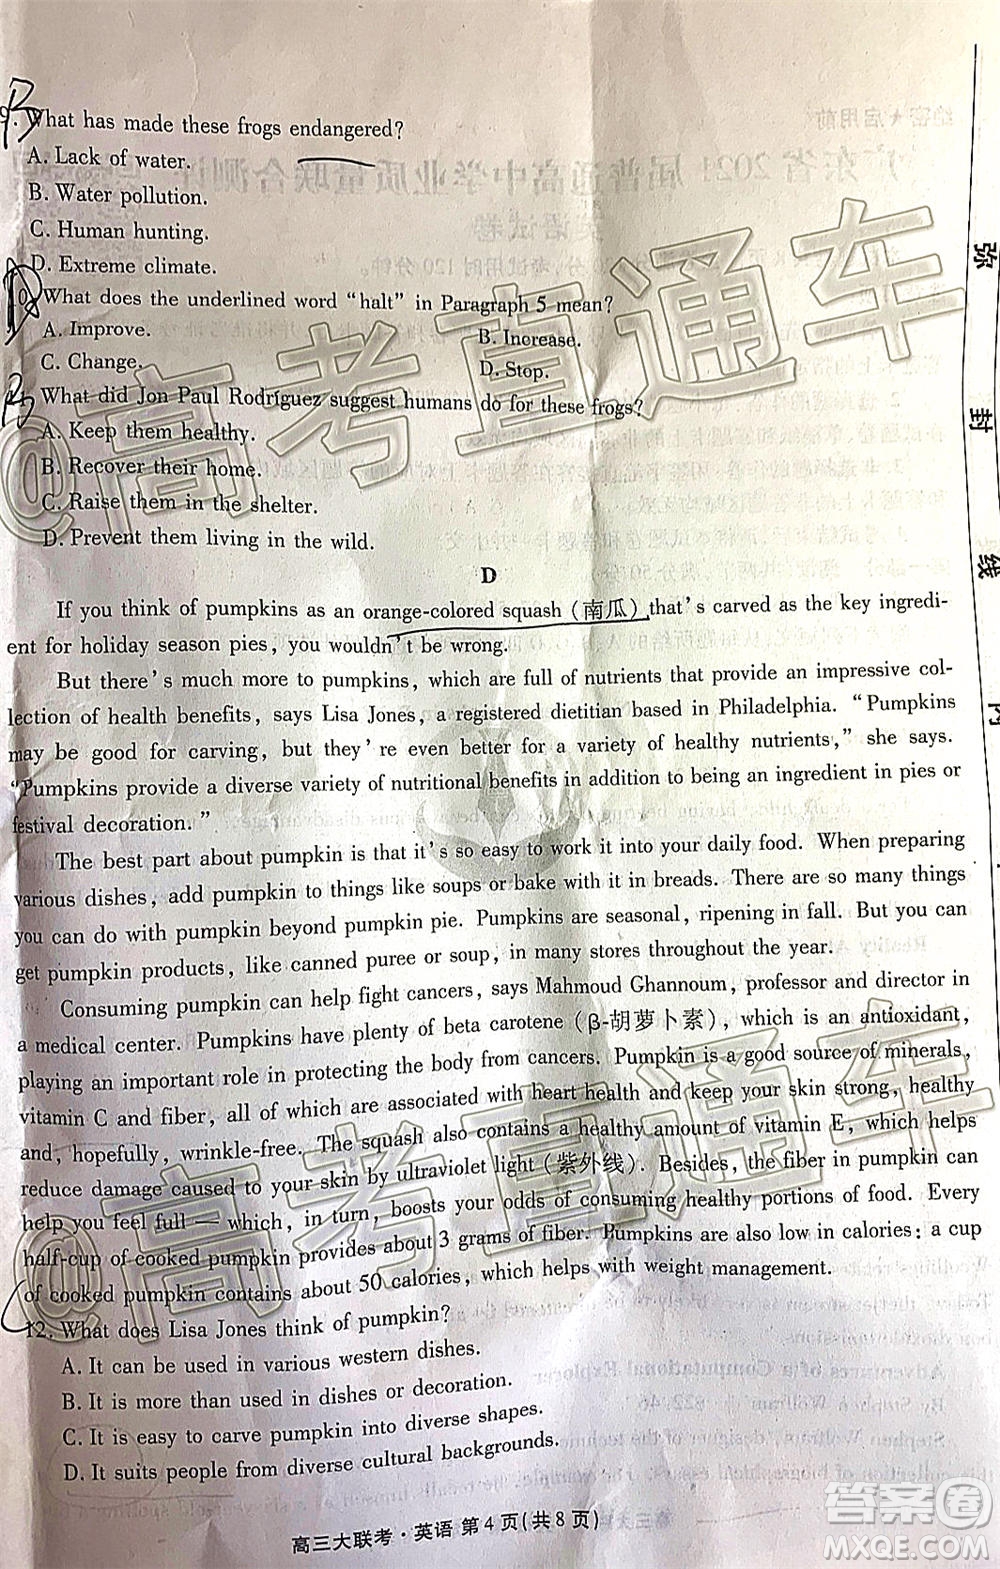 B
9. What has made these frogs endangered?
A. Lack of water.
B. Water pollution.
C. Human hunting.
D. Extreme climate.
10. What does the underlined word "halt" in Paragraph 5 mean?
A. Improve.
B. Increase.
C. Change.
D. Stop.
What did Jon Paul Rodríguez suggest humans do for these frogs?
A. Keep them healthy.
B. Recover their home.
C. Raise them in the shelter.
D. Prevent them living in the wild.
D
If you think of pumpkins as an orange-colored squash (南瓜) that's carved as the key ingredi-
ent for holiday season pies, you wouldn't be wrong.
But there's much more to pumpkins, which are full of nutrients that provide an impressive col-
lection of health benefits, says Lisa Jones, a registered dietitian based in Philadelphia. "Pumpkins
may be good for carving, but they're even better for a variety of healthy nutrients," she says.
"Pumpkins provide a diverse variety of nutritional benefits in addition to being an ingredient in pies or
festival decoration."
The best part about pumpkin is that it's so easy to work it into your daily food. When preparing
various dishes, add pumpkin to things like soups or bake with it in breads. There are so many things
you can do with pumpkin beyond pumpkin pie. Pumpkins are seasonal, ripening in fall. But you can
get pumpkin products, like canned puree or soup, in many stores throughout the year.
Consuming pumpkin can help fight cancers, says Mahmoud Ghannoum, professor and director in
a medical center. Pumpkins have plenty of beta carotene (β-胡萝卜素), which is an antioxidant,
playing an important role in protecting the body from cancers. Pumpkin is a good source of minerals,
vitamin C and fiber, all of which are associated with heart health and keep your skin strong, healthy
and, hopefully, wrinkle-free. The squash also contains a healthy amount of vitamin E, which helps
reduce damage caused to your skin by ultraviolet light (紫外线). Besides, the fiber in pumpkin can
help you feel full — which, in turn, boosts your odds of consuming healthy portions of food. Every
half-cup of cooked pumpkin provides about 3 grams of fiber. Pumpkins are also low in calories: a cup
of cooked pumpkin contains about 50 calories, which helps with weight management.
12. What does Lisa Jones think of pumpkin?
A. It can be used in various western dishes.
B. It is more than used in dishes or decoration.
C. It is easy to carve pumpkin into diverse shapes.
D. It suits people from diverse cultural backgrounds.
高三大联考·英语 第4页(共8页)
弥
封
线
内
@高考直通车
@高考直通车
答案圈
MXQE.COM